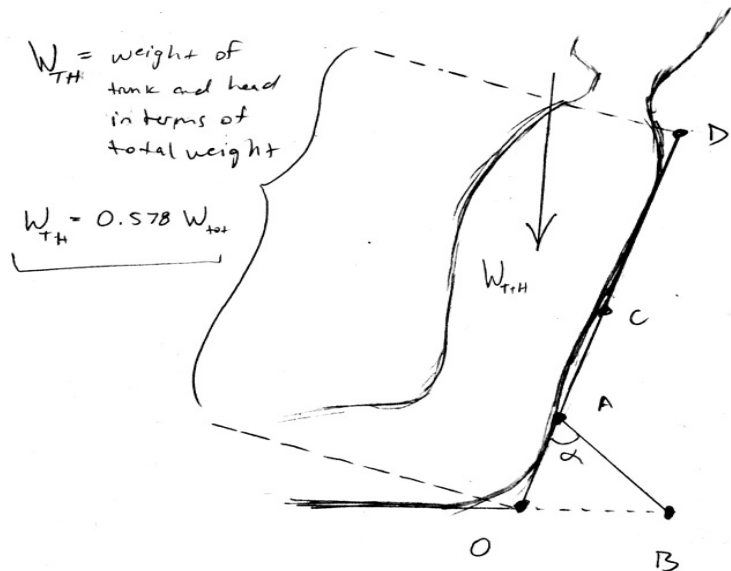 W_TH = weight of
trunk and head
in terms of
total weight
W_TH = 0.578 W_tot
W_T+H
D
C
A
α
O
B